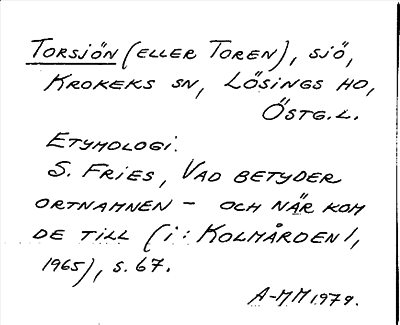 Torsjön (eller Toren), sjö,
Krokeks sn, Lösings hd,
Östg.l.
Etymologi:
S. Fries, Vad betyder
ortnamnen – och när kom
de till (i: Kolmården 1,
1965), s. 67.
A-MM 1979.